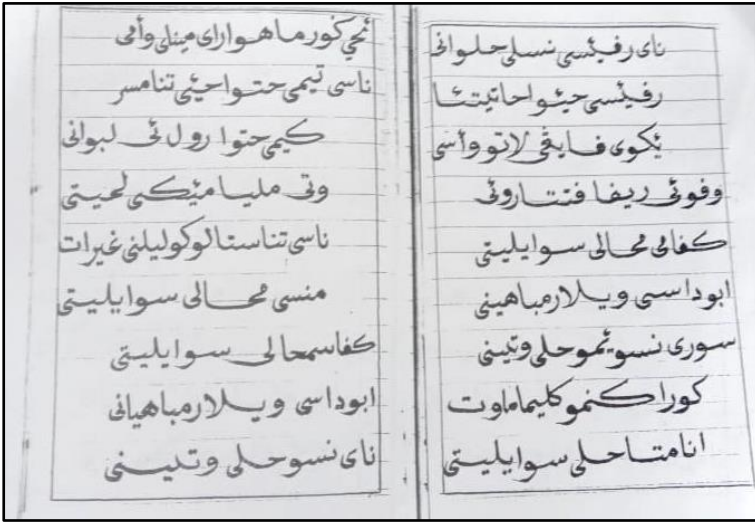 ناى رفيئسى نسلى حلوانى
رفيئسى حيئواحاتيتئا
يكوى فايڤى لاتو وأسى
وفوئى ريفا فتتاروئى
كفافى محالى سوايليتى
ابوداسى ويلارمباهينى
سورى نسويموحلى وتينى
كوراكنموكليماماوت
انامتاحلى سوايليتى
ئحي كور ماهواراى مينلى وأمى
ناسى تيمى حتواحيئى تنامسر
كيمى حتوا رول ئى لبوانى
وتى مليا ميئكى لحيتى
ناسى تناستالوكوليلنى غيرات
منسى محالى سوايليتى
كفاسمحالى سوايليتى
ابوداسى ويلارمباهيانى
ناى نسوحلى وتدينى